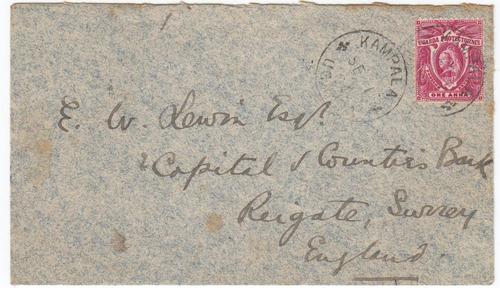 UGANDA PROTECTORATE
ONE ANNA
KAMPALA
SE
E. W. Lewin Esqr
Capital & Counties Bank
Reigate, Surrey
England.